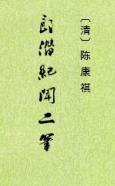 〔清〕陈康祺
郎潜紀聞二筆